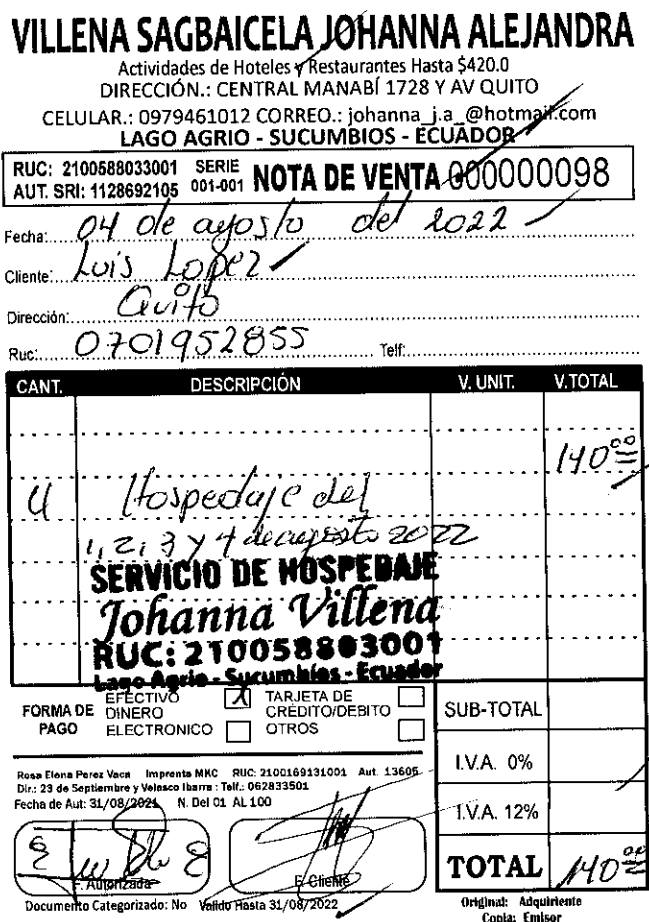 VILLENA SAGBAICELA JOHANNA ALEJANDRA
Actividades de Hoteles y Restaurantes Hasta $420.0
DIRECCIÓN.: CENTRAL MANABÍ 1728 Y AV QUITO
CELULAR.: 0979461012 CORREO.: johanna_j.a_@hotmail.com
LAGO AGRIO - SUCUMBIOS - ECUADOR
RUC: 2100588033001 SERIE
AUT. SRI: 1128692105 001-001 NOTA DE VENTA 000000098
Fecha: 04 de agosto del 2022
Cliente: Luis Lopez
Dirección: Quito
Ruc: 0701952855 Telf:
CANT. DESCRIPCIÓN V. UNIT. V.TOTAL
140.00
4 Hospedaje del
1, 2, 3 y 4 de agosto 2022
SERVICIO DE HOSPEDAJE
Johanna Villena
RUC: 210058803001
Lago Agrio - Sucumbios - Ecuador
FORMA DE PAGO
EFECTIVO X TARJETA DE CRÉDITO/DEBITO
DINERO ELECTRONICO OTROS
SUB-TOTAL
I.V.A. 0%
I.V.A. 12%
TOTAL 140.00
Rosa Elena Perez Vaca Imprenta MKC RUC: 2100169131001 Aut. 13605
Dir.: 23 de Septiembre y Velasco Ibarra : Telf.: 062833501
Fecha de Aut: 31/08/2021 N. Del 01 AL 100
F. Autorizada F. Cliente
Documento Categorizado: No Valido Hasta 31/08/2022
Original: Adquiriente
Copia: Emisor